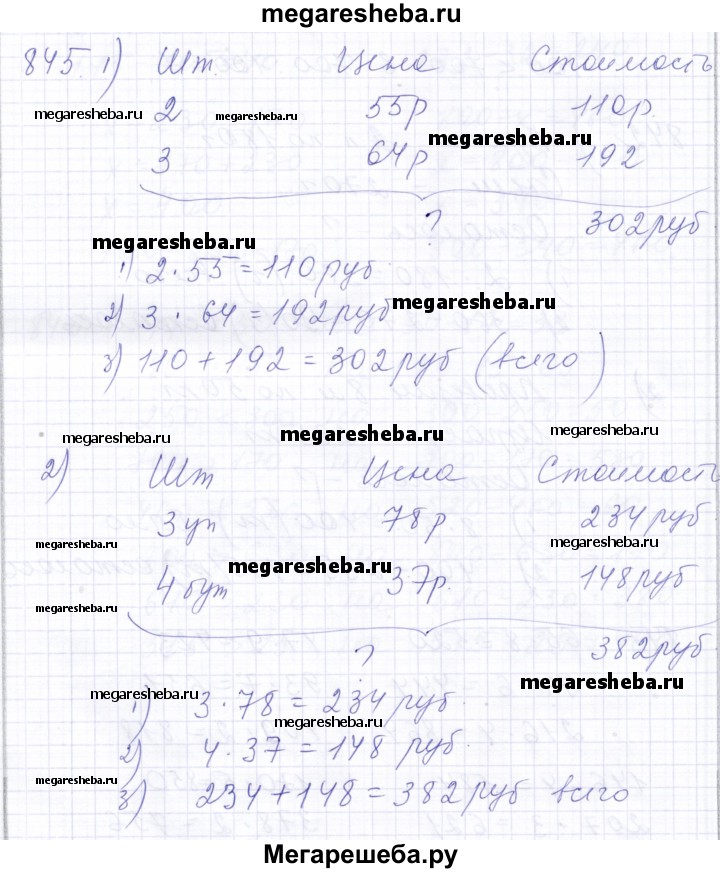 megaresheba.ru
845. 1) Шт. Цена Стоимость
megaresheba.ru 2 megaresheba.ru 55р 110р.
megaresheba.ru
3 64р 192
? 302 руб
megaresheba.ru
1) 2 · 55 = 110 руб
2) 3 · 64 = 192 руб megaresheba.ru
3) 110 + 192 = 302 руб (всего)
megaresheba.ru megaresheba.ru megaresheba.ru
2) Шт Цена Стоимость
3 уп 78 р 234 руб
megaresheba.ru megaresheba.ru
megaresheba.ru
4 бут 37р. 148 руб
megaresheba.ru
? 382 руб
megaresheba.ru megaresheba.ru
1) 3 · 78 = 234 руб.
megaresheba.ru
2) 4 · 37 = 148 руб.
megaresheba.ru
3) 234 + 148 = 382 руб всего
Мегарешеба.ру